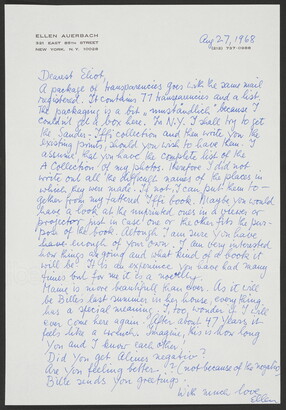 ELLEN AUERBACH
531 EAST 88TH STREET
NEW YORK, N.Y. 10028
Aug 27, 1968
(212) 737-0988
Dearest Eliot,
A package of transparencies goes with the same mail
registered. It contains 77 transparencies and a list.
The packaging is a bit "umständlich" because I
couldn't get a box here. In N.Y. I shall try to get
the Sander- collection and then write you the
existing prints, should you wish to have them. I
assume that you have the complete list of the
A collection of my photos. Therefore I did not
write out all the different names of the places in
which they were made. If not, I can put them to-
gether from my tattered book. Maybe you would
have a look at the unjointed ones in a viewer or
projector just in case one or the other fits the pur-
pose of the book. Although I am sure you have
enough of your own. I am very interested
how things are going and what kind of a book it
will be. It is an experience you have had many
times but for me it is a novelty.
Maine is more beautiful than ever. As it will
be last summer in her house, everything
has a special meaning. I, too, wonder if I will
ever come here again. After about 47 years it
feels like a Imagine, this is how long
you and I know each other.
Did you get negative?
Are you feeling better? (not because of the negative)
sends you greetings.
With much love
Ellen